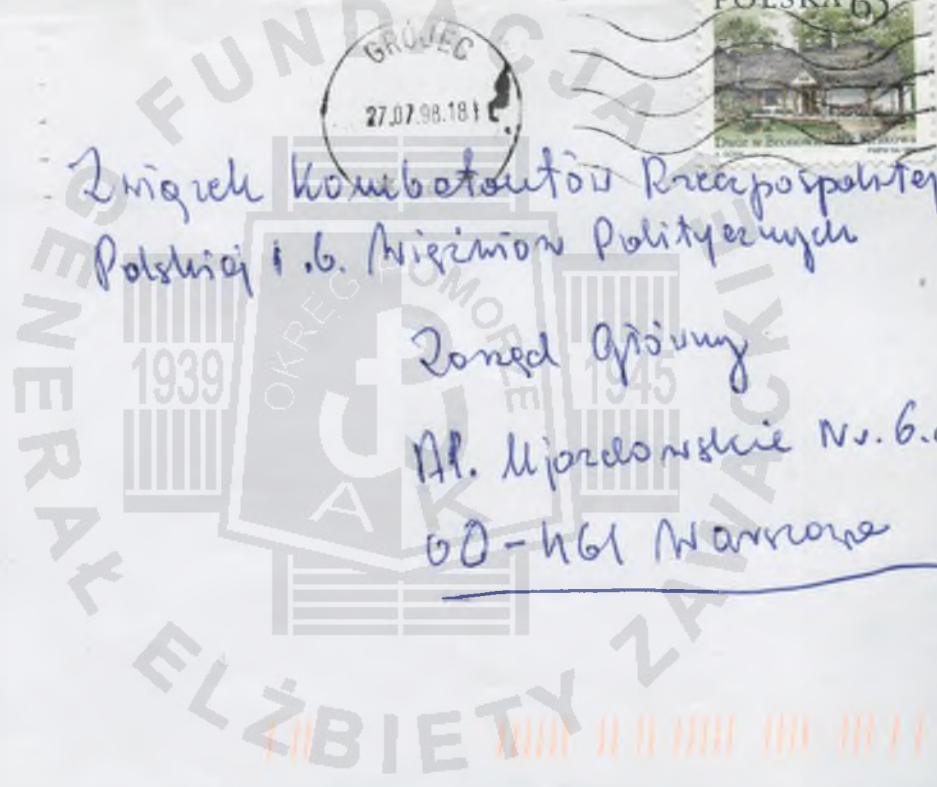 POLSKA 65
GRÓJEC
27.07.98.18
Związek Kombatantów Rzeczpospolitej
Polskiej i .b. Więźniów Politycznych
Zarząd Główny
Al. Ujazdowskie Nr. 6.
00-461 Warszawa
FUNDACJA
GENERAŁ ELŻBIETY ZAWACKIEJ
OKRĘG POMORZE
1939
1945
AK